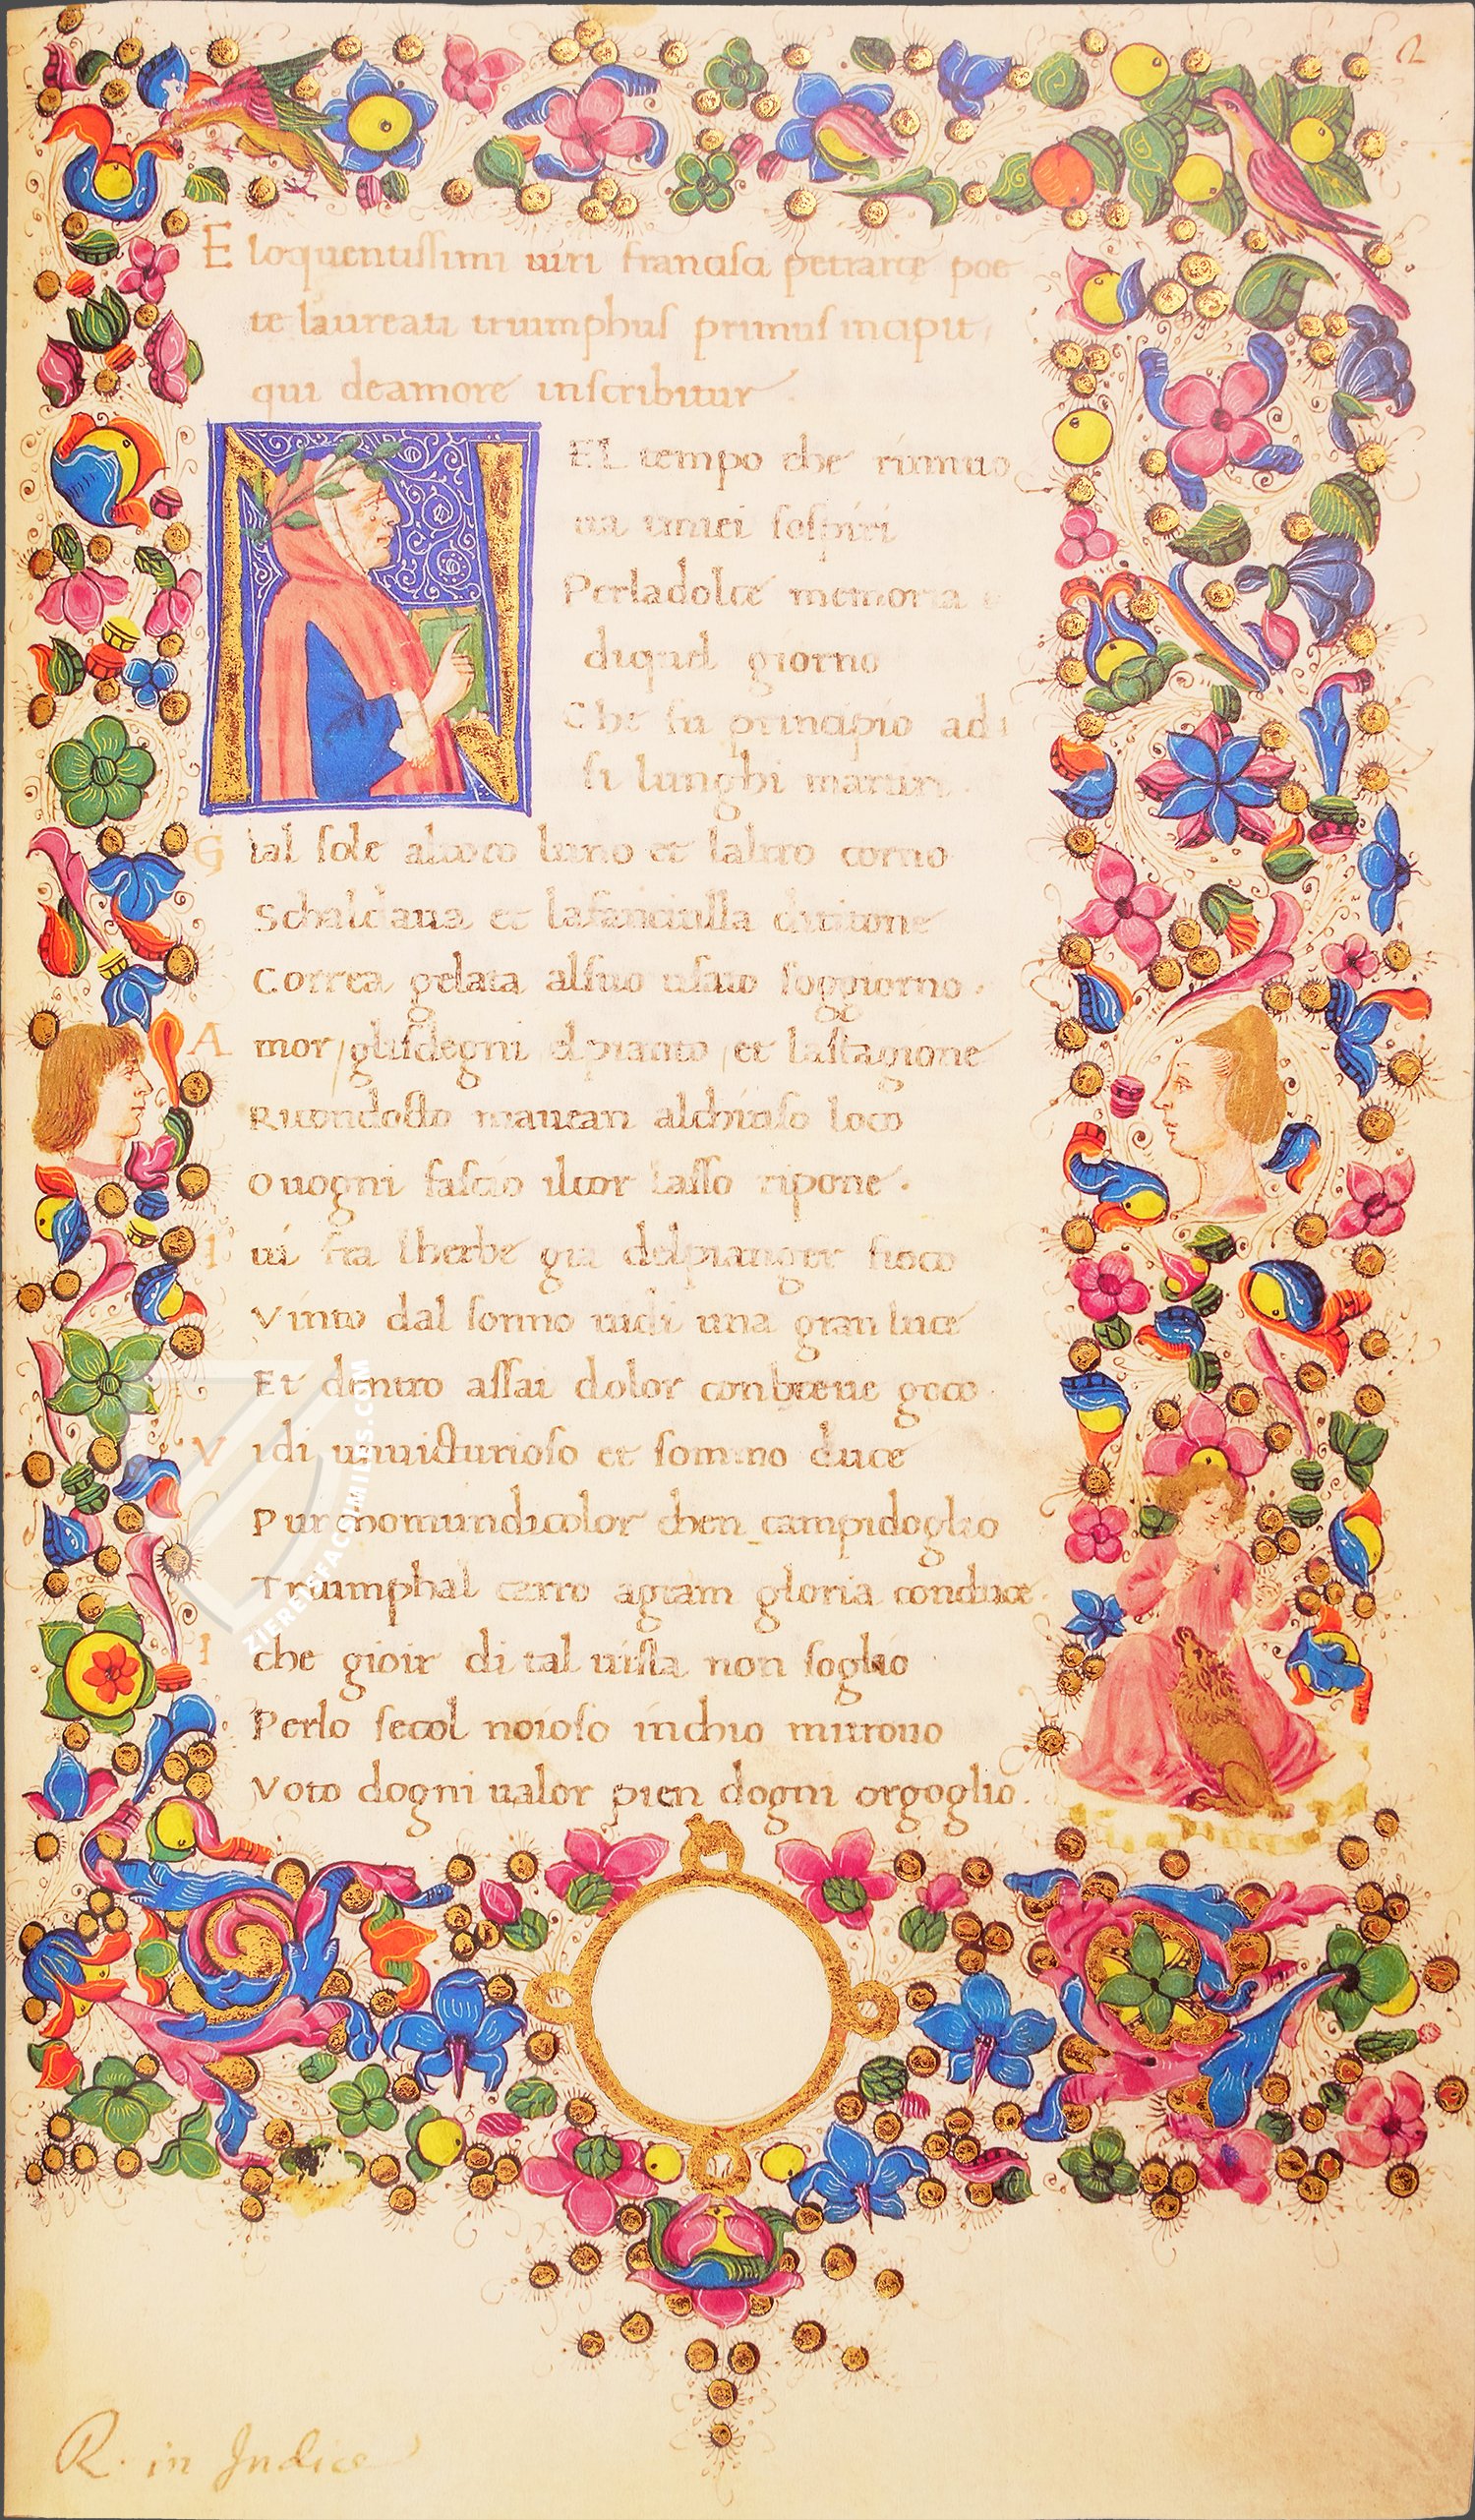 2
Eloquentissimi uiri francisci petrarcę poe
te laureati triumphus primus incipit
qui deamore inscribitur.
NEL tempo che rinnuo
ua imiei sospiri
Perladolce memoria
diquel giorno
Che fu principio ad
si lunghi martiri.
Gial sole altoro luno et laltro corno
Schaldaua et lafanciulla dititone
Correa gelata alsuo usato soggiorno.
Amor / glisdegni elpianto / et lastagione
Ricondocto mauean alchiuso loco
Ouogni fascio ilcor lasso ripone.
Iui fra lherbe gia delpianger fioco
Vinto dal sonno uidi una gran luce
Et dentro assai dolor conbrieue gioco
Vidi unuicturioso et sommo duce
Pur chomundicolor chen campidoglio
Triumphal carro agram gloria conduce
I che gioir di tal uista non soglio
Perlo secol noioso inchio mitrouo
Voto dogni ualor pien dogni orgoglio.
ZIEREIFACSIMILES.COM
R. in Indice